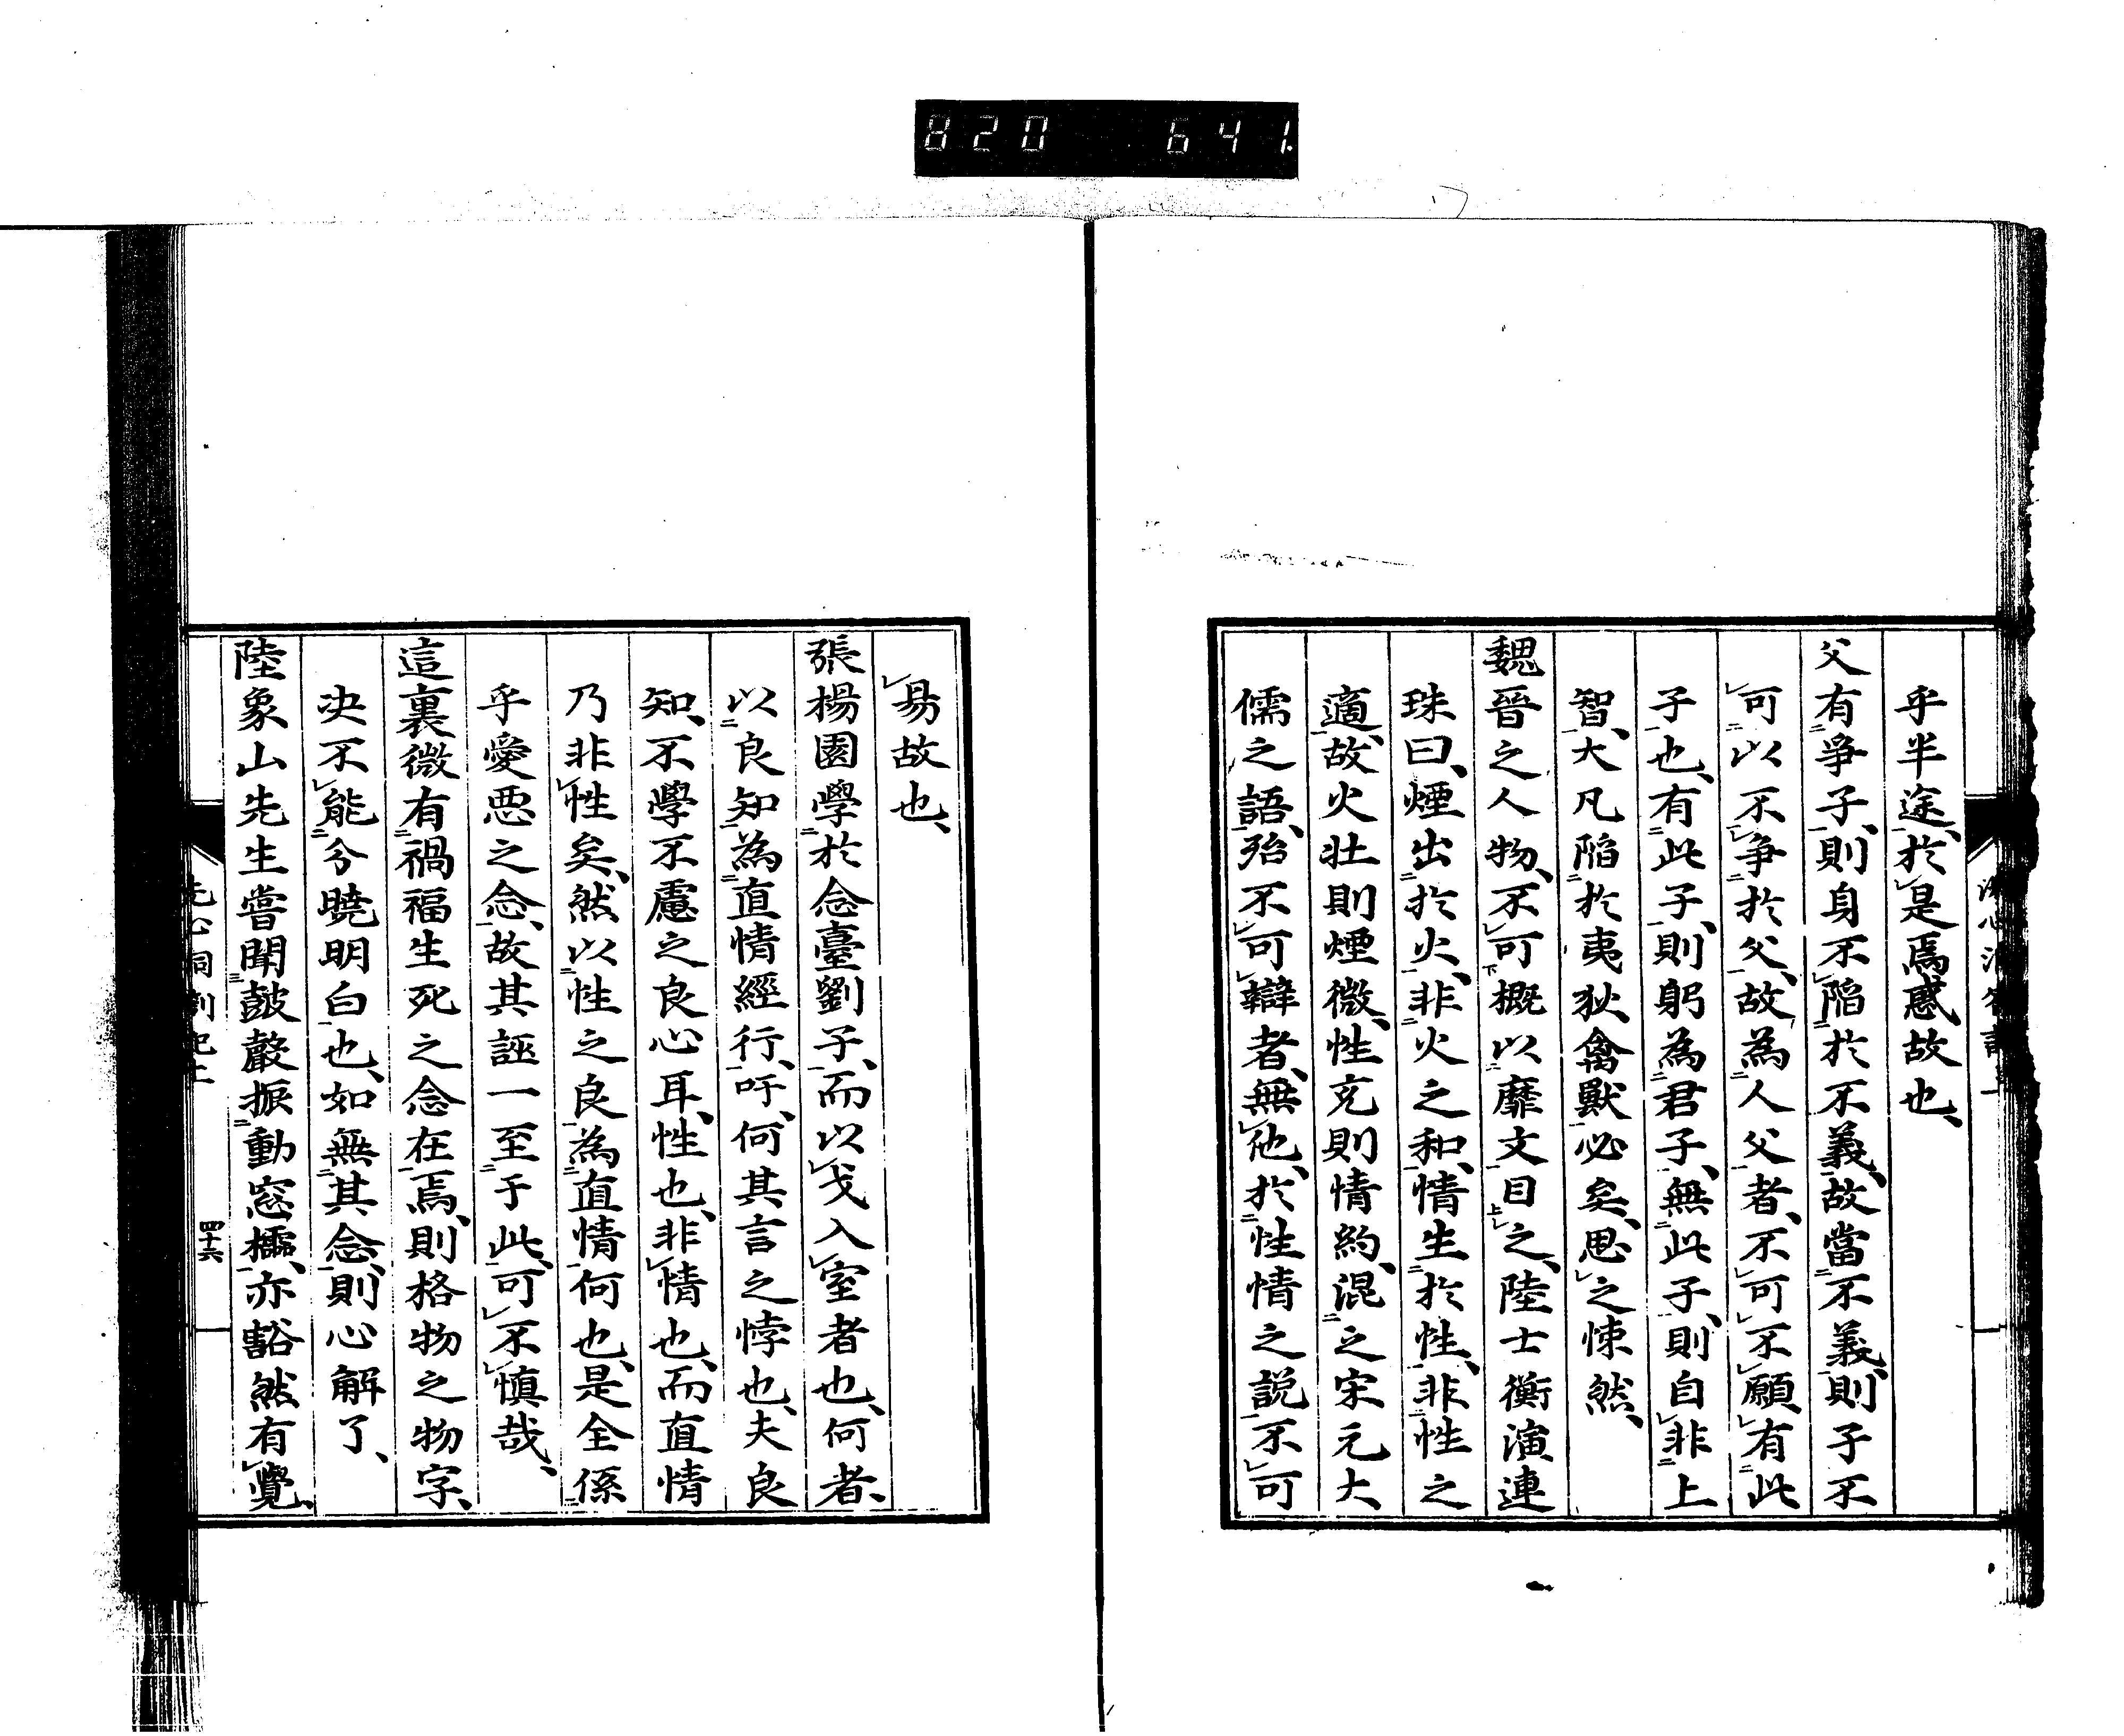 820 641.
乎半途、於是焉惑故也、
父有爭子、則身不陷於不義、故當不義、則子不
可以不爭於父、故為人父者、不可不願有此
子也、有此子、則躬為君子、無此子、則自非上
智、大凡陷於夷狄禽獸必矣、思之悚然、
魏晉之人物、不可概以靡文目之、陸士衡演連
珠曰、煙出於火、非火之和、情生於性、非性之
適、故火壯則煙微、性充則情約、混之宋元大
儒之語、殆不可辯者、無他、於性情之說不可
易故也、
張楊園學於念臺劉子、而以戈入室者也、何者、
以良知為直情經行、吁、何其言之悖也、夫良
知、不學不慮之良心耳、性也、非情也、而直情
乃非性矣、然以性之良為直情何也、是全係
乎愛惡之念、故其誣一至于此、可不慎哉、
這裏微有禍福生死之念在焉、則格物之物字、
決不能分曉明白也、如無其念、則心解了、
陸象山先生嘗聞鼓聲振動窓櫺、亦豁然有覺、
四十六